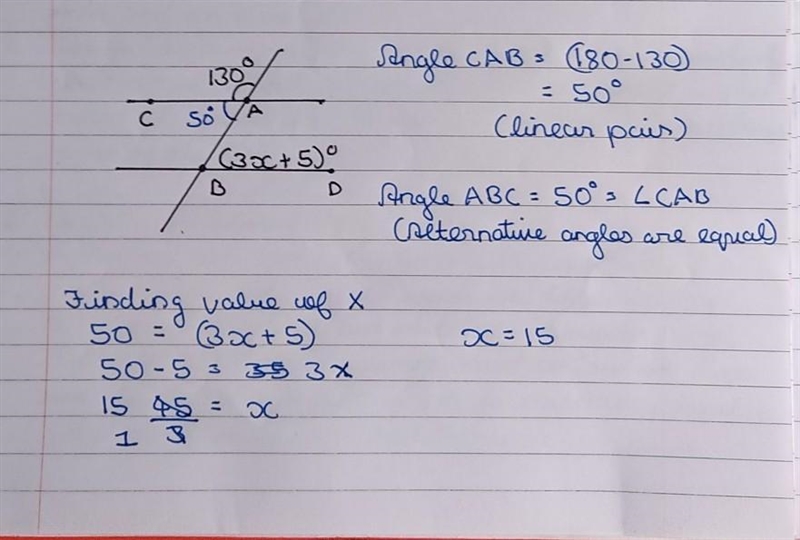 130°
C 50° A
(3x+5)°
B D
Angle CAB = (180-130)
= 50°
(linear pair)
Angle ABC = 50° = ∠CAB
(Alternative angles are equal)
Finding value of x
50 = (3x+5)
50-5 = 35 3x
15 45 = x
1 3
x = 15